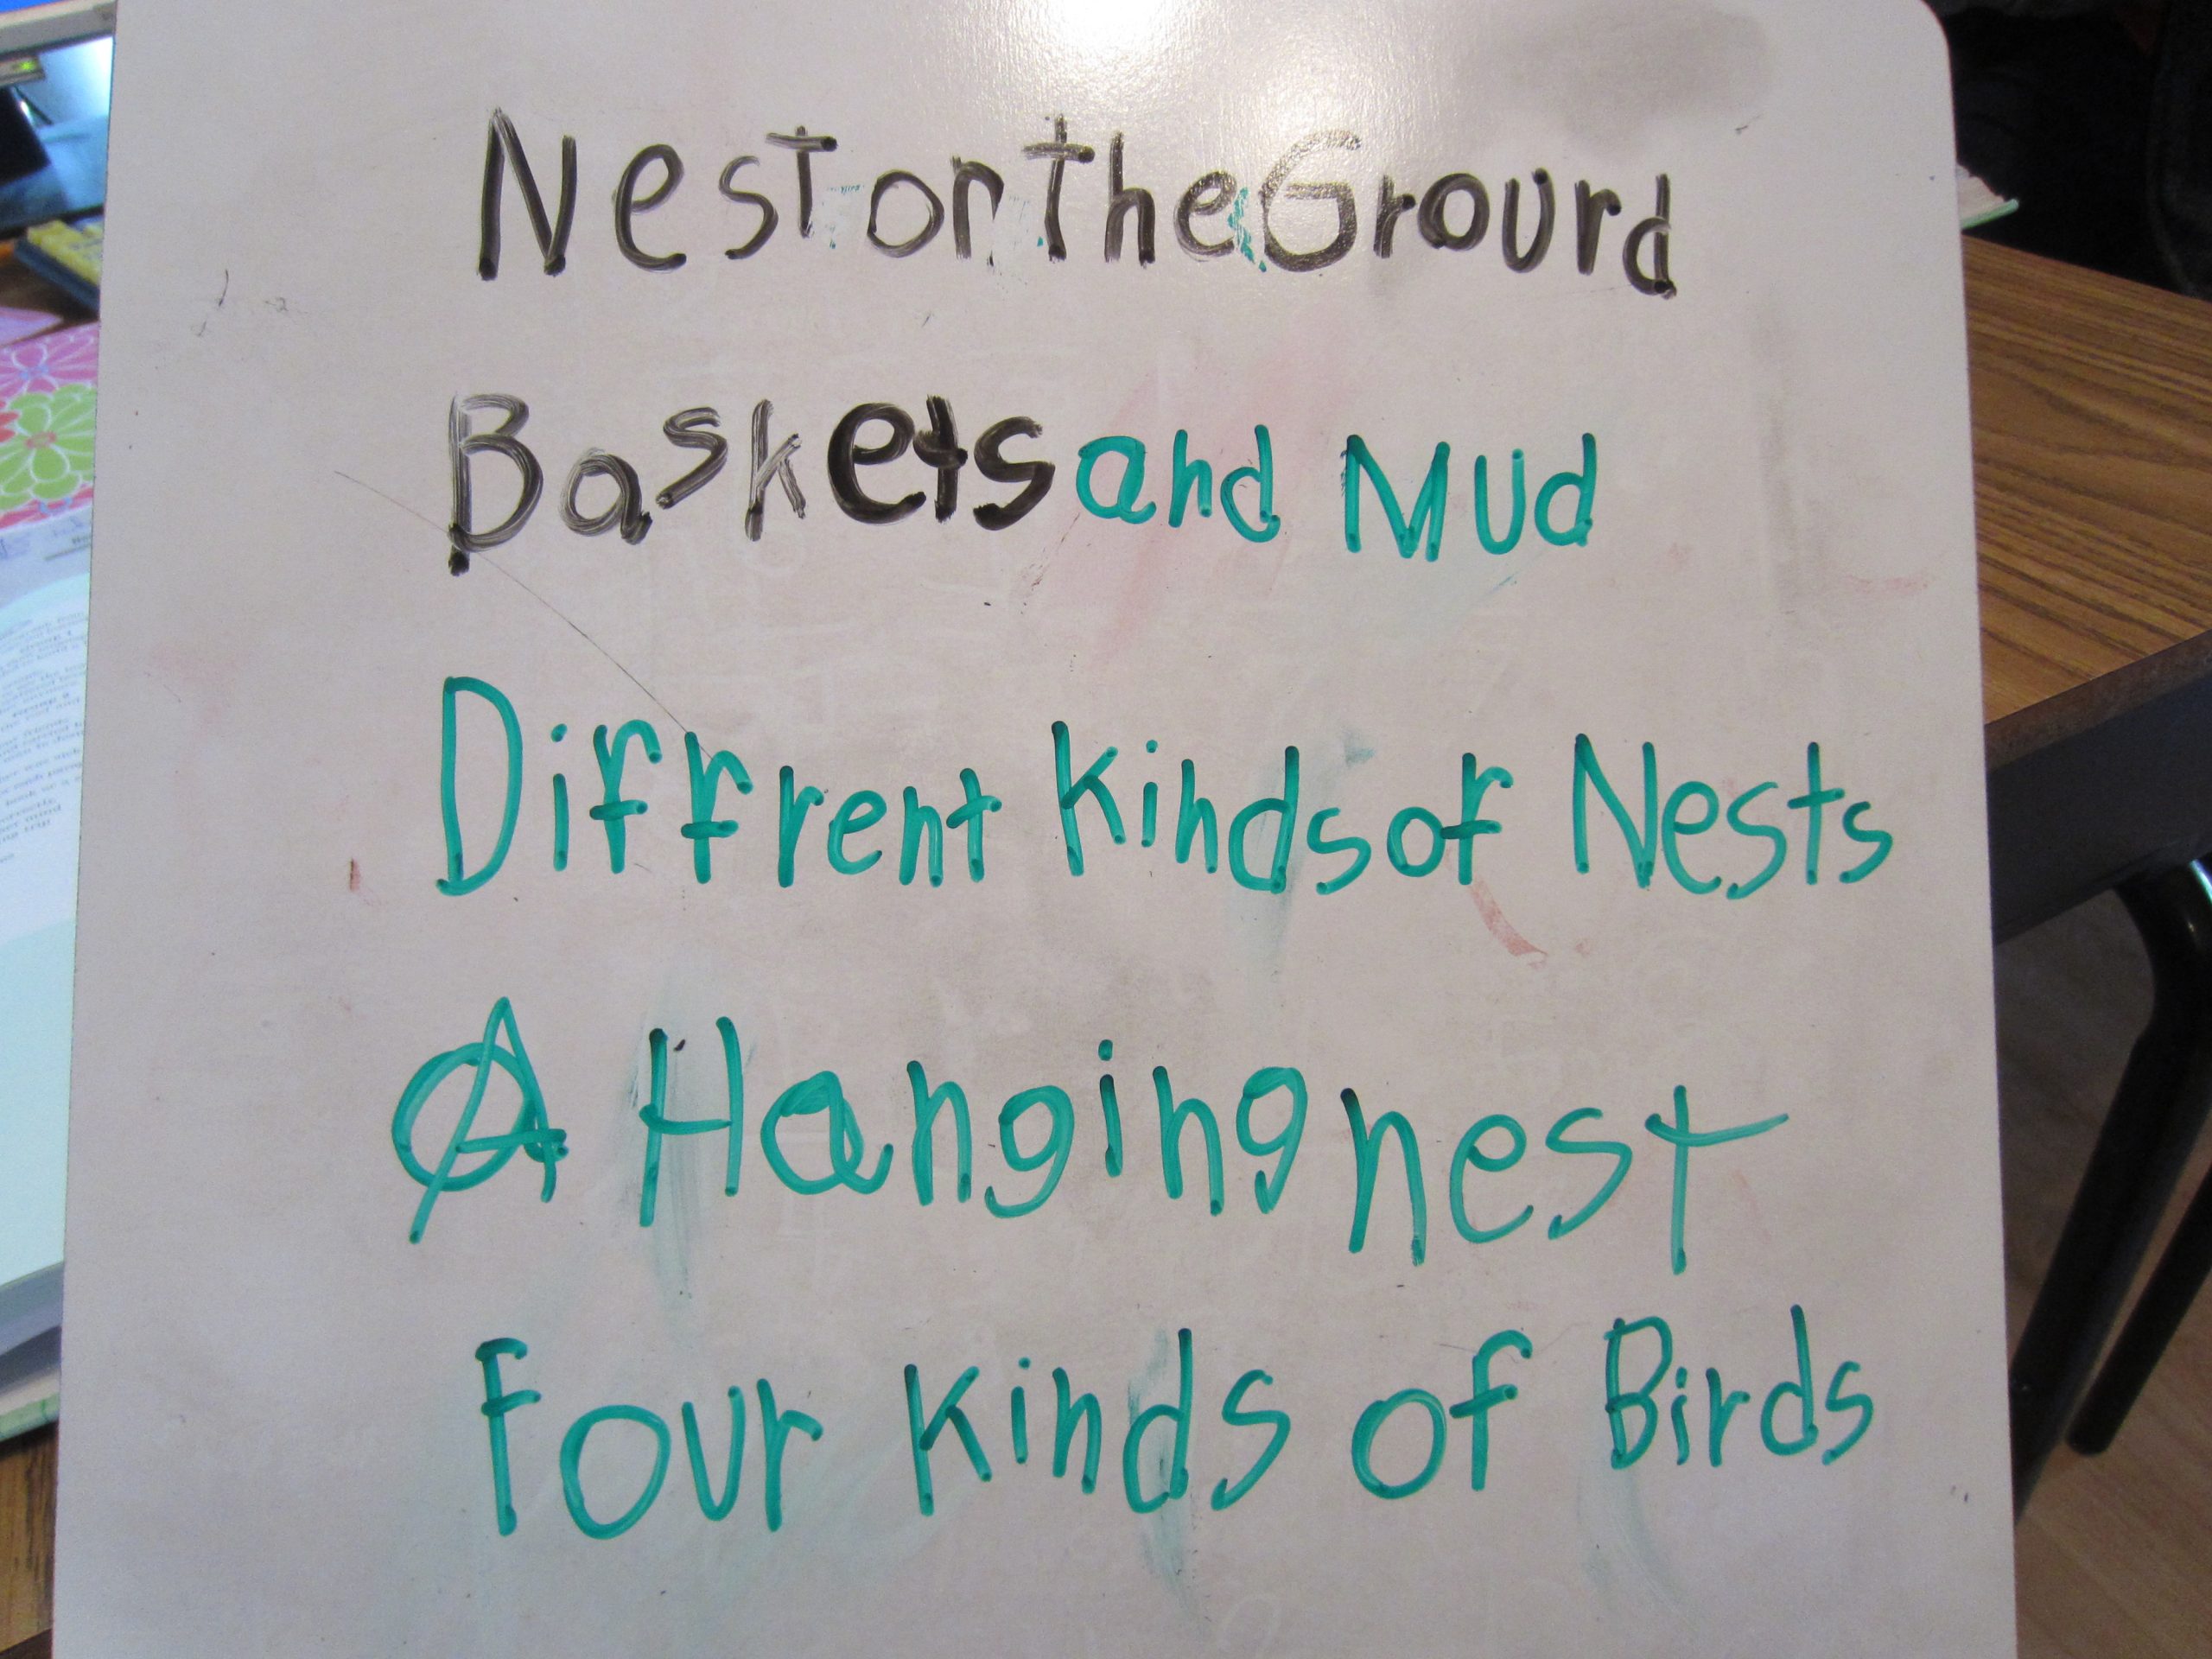 Nest on the Ground
Baskets and Mud
Diffrent Kinds of Nests
A Hanging nest
Four Kinds of Birds